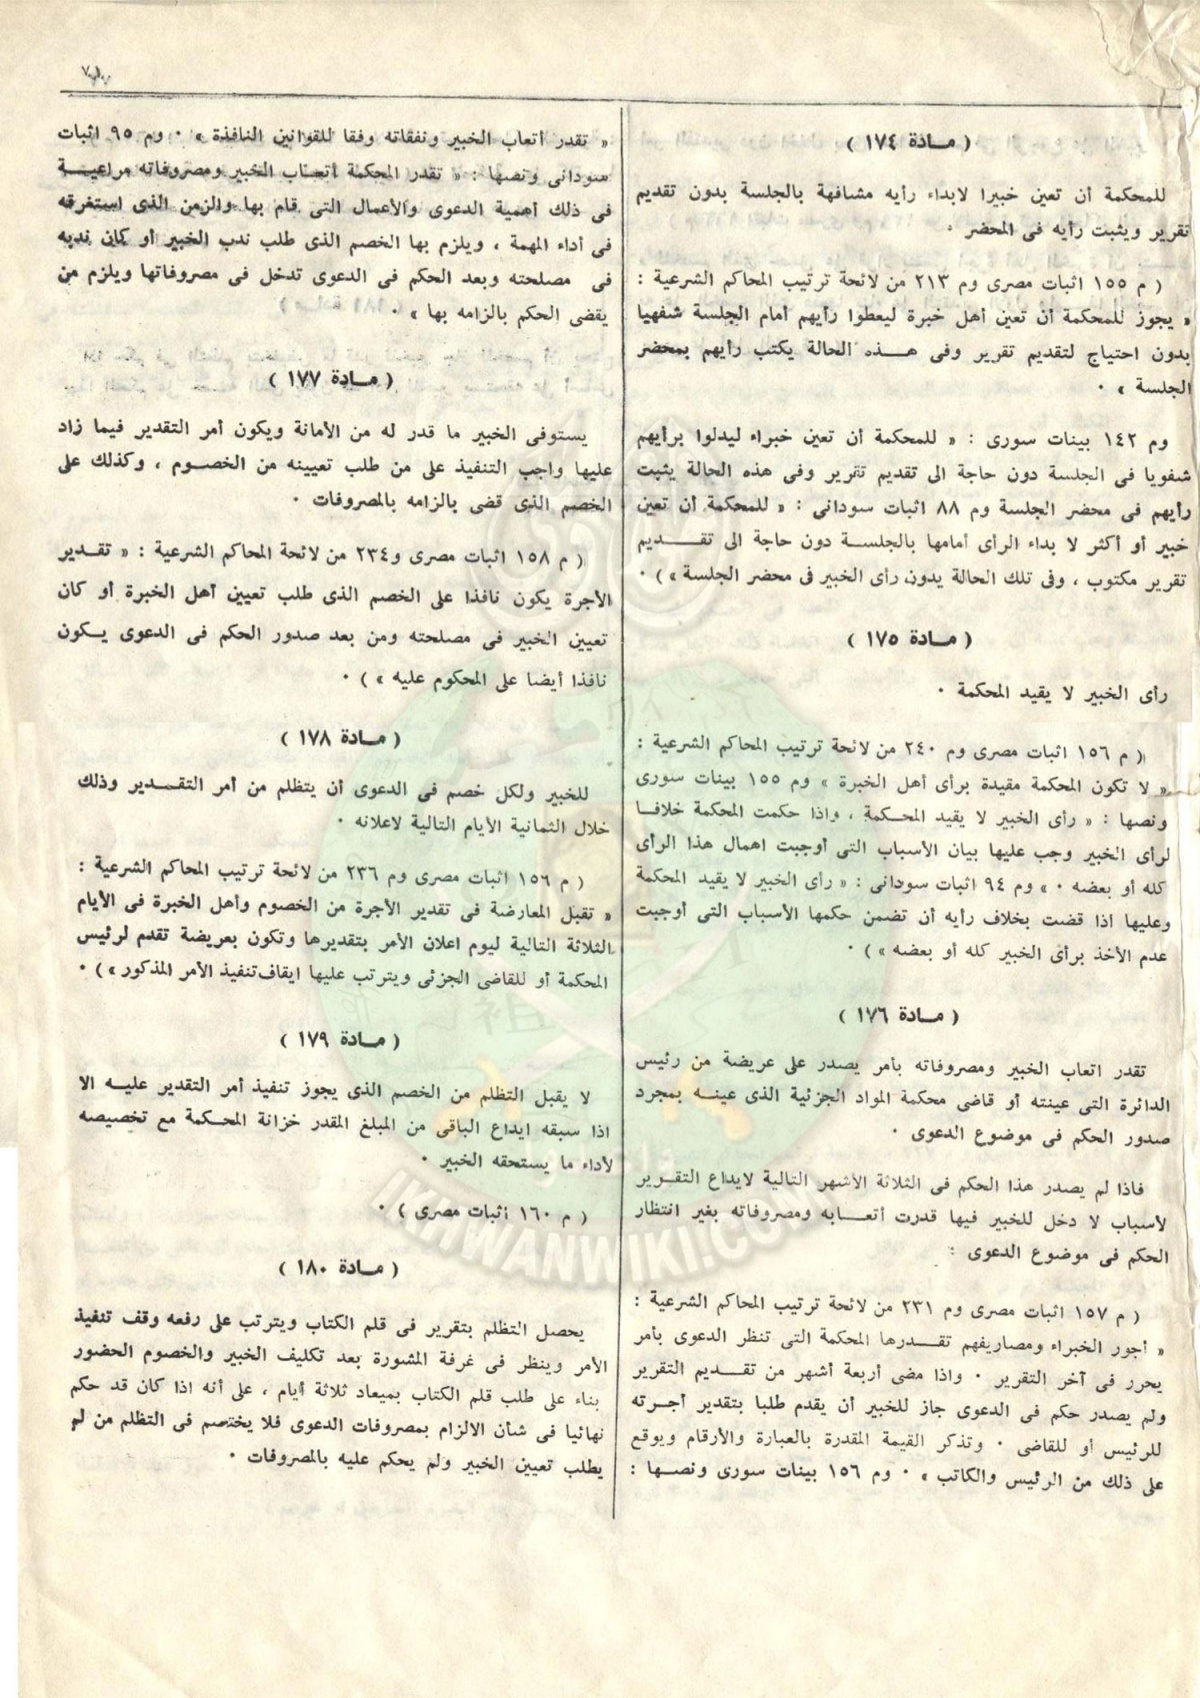 ( مـادة ١٧٤ )
للمحكمة أن تعين خبيرا لابداء رأيه مشافهة بالجلسة بدون تقديم
تقرير ويثبت رأيه فى المحضر ٠
( م ١٥٥ اثبات مصرى وم ٢١٣ من لائحة ترتيب المحاكم الشرعية :
« يجوز للمحكمة أن تعين أهل خبرة ليعطوا رأيهم أمام الجلسة شفهيا
بدون احتياج لتقديم تقرير وفى هـــذه الحالة يكتب رأيهم بمحضر
الجلسة » ٠
وم ١٤٢ بينات سورى : « للمحكمة أن تعين خبراء ليدلوا برأيهم
شفويا فى الجلسة دون حاجة الى تقديم تقرير وفى هذه الحالة يثبت
رأيهم فى محضر الجلسة وم ٨٨ اثبات سودانى : « للمحكمة أن تعين
خبير أو أكثر لا بداء الرأى أمامها بالجلســة دون حاجة الى تقـــديم
تقرير مكتوب ، وفى تلك الحالة يدون رأى الخبير فى محضر الجلسة » ) ٠
( مـادة ١٧٥ )
رأى الخبير لا يقيد المحكمة ٠
( م ١٥٦ اثبات مصرى وم ٢٤٠ من لائحة ترتيب المحاكم الشرعية :
« لا تكون المحكمة مقيدة برأى أهل الخبرة » وم ١٥٥ بينات سورى
ونصها : « رأى الخبير لا يقيد المحـكمة ، واذا حكمت المحكمة خلافـا
لرأى الخبير وجب عليها بيان الأسباب التى أوجبت اهمال هذا الرأى
كله أو بعضه ٠ » وم ٩٤ اثبات سودانى : « رأى الخبير لا يقيد المحكمة
وعليها اذا قضت بخلاف رأيه أن تضمن حكمها الأسباب التى أوجبت
عدم الأخذ برأى الخبير كله أو بعضه » ) ٠
( مـادة ١٧٦ )
تقدر اتعاب الخبير ومصروفاته بأمر يصدر على عريضة من رئيس
الدائرة التى عينته أو قاضى محكمة المواد الجزئية الذى عينــه بمجرد
صدور الحكم فى موضوع الدعوى ٠
فاذا لم يصدر هذا الحكم فى الثلاثة الأشهر التالية لايداع التقـرير
لأسباب لا دخل للخبير فيها قدرت أتعـــابه ومصروفاته بغير انتظار
الحكم فى موضوع الدعوى :
( م ١٥٧ اثبات مصرى وم ٢٣١ من لائحة ترتيب المحاكم الشرعية :
« أجور الخبراء ومصاريفهم تقـــدرها المحكمة التى تنظر الدعوى بأمر
يحرر فى آخر التقرير ٠ واذا مضى أربعة أشهر من تقـديم التقرير
ولم يصدر حكم فى الدعوى جاز للخبير أن يقدم طلبا بتقدير أجـرته
للرئيس أو للقاضى ٠ وتذكر القيمة المقدرة بالعبارة والأرقام ويوقع
على ذلك من الرئيس والكاتب » ٠ وم ١٥٦ بينات سورى ونصـها :
« تقدر أتعاب الخبير ونفقاته وفقا للقوانين النافذة » ٠ وم ٩٥ اثبات
سودانى ونصها : « تقدر المحكمة أتعـاب الخبير ومصروفاته مراعيـة
فى ذلك أهمية الدعوى والأعمال التى قام بها والزمن الذى استغرقه
فى أداء المهمة ، ويلزم بها الخصم الذى طلب ندب الخبير أو كان ندبه
فى مصلحته وبعد الحكم فى الدعوى تدخل فى مصروفاتها ويلزم من
يقضى الحكم بالزامه بها » ٠
( مـادة ١٧٧ )
يستوفى الخبير ما قدر له من الأمانة ويكون أمر التقدير فيما زاد
عليها واجب التنفيذ على من طلب تعيينه من الخصـوم ، وكذلك على
الخصم الذى قضى بالزامه بالمصروفات ٠
( م ١٥٨ اثبات مصرى و٢٣٤ من لائحة المحاكم الشرعية : « تقـدير
الأجرة يكون نافذا على الخصم الذى طلب تعيين أهل الخبرة أو كان
تعيين الخبير فى مصلحته ومن بعد صدور الحكم فى الدعوى يــكون
نافذا أيضا على المحكوم عليه » ) ٠
( مـادة ١٧٨ )
للخبير ولكل خصم فى الدعوى أن يتظلم من أمر التقـدير وذلك
خلال الثمانية الأيام التالية لاعلانه ٠
( م ١٥٦ اثبات مصرى وم ٢٣٦ من لائحة ترتيب المحاكم الشرعية :
« تقبل المعارضة فى تقدير الأجرة من الخصوم وأهل الخبرة فى الأيام
الثلاثة التالية ليوم اعلان الأمر بتقديرها وتكون بعريضة تقدم لرئيس
المحكمة أو للقاضى الجزئى ويترتب عليها ايقاف تنفيذ الأمر المذكور » ) ٠
( مـادة ١٧٩ )
لا يقبل التظلم من الخصم الذى يجوز تنفيذ أمر التقدير عليــه الا
اذا سبقه ايداع الباقى من المبلغ المقدر خزانة المحـكمة مع تخصيصه
لأداء ما يستحقه الخبير ٠
( م ١٦٠ اثبات مصرى ) ٠
( مـادة ١٨٠ )
يحصل التظلم بتقرير فى قلم الكتاب ويترتب على رفعه وقف تنفيذ
الأمر وينظر فى غرفة المشورة بعد تكليف الخبير والخصوم الحضور
بناء على طلب قلم الكتاب بميعاد ثلاثة أيام ، على أنه اذا كان قد حكم
نهائيا فى شأن الالزام بمصروفات الدعوى فلا يختصم فى التظلم من لم
يطلب تعيين الخبير ولم يحكم عليه بالمصروفات ٠
IKHWANWIKI.COM